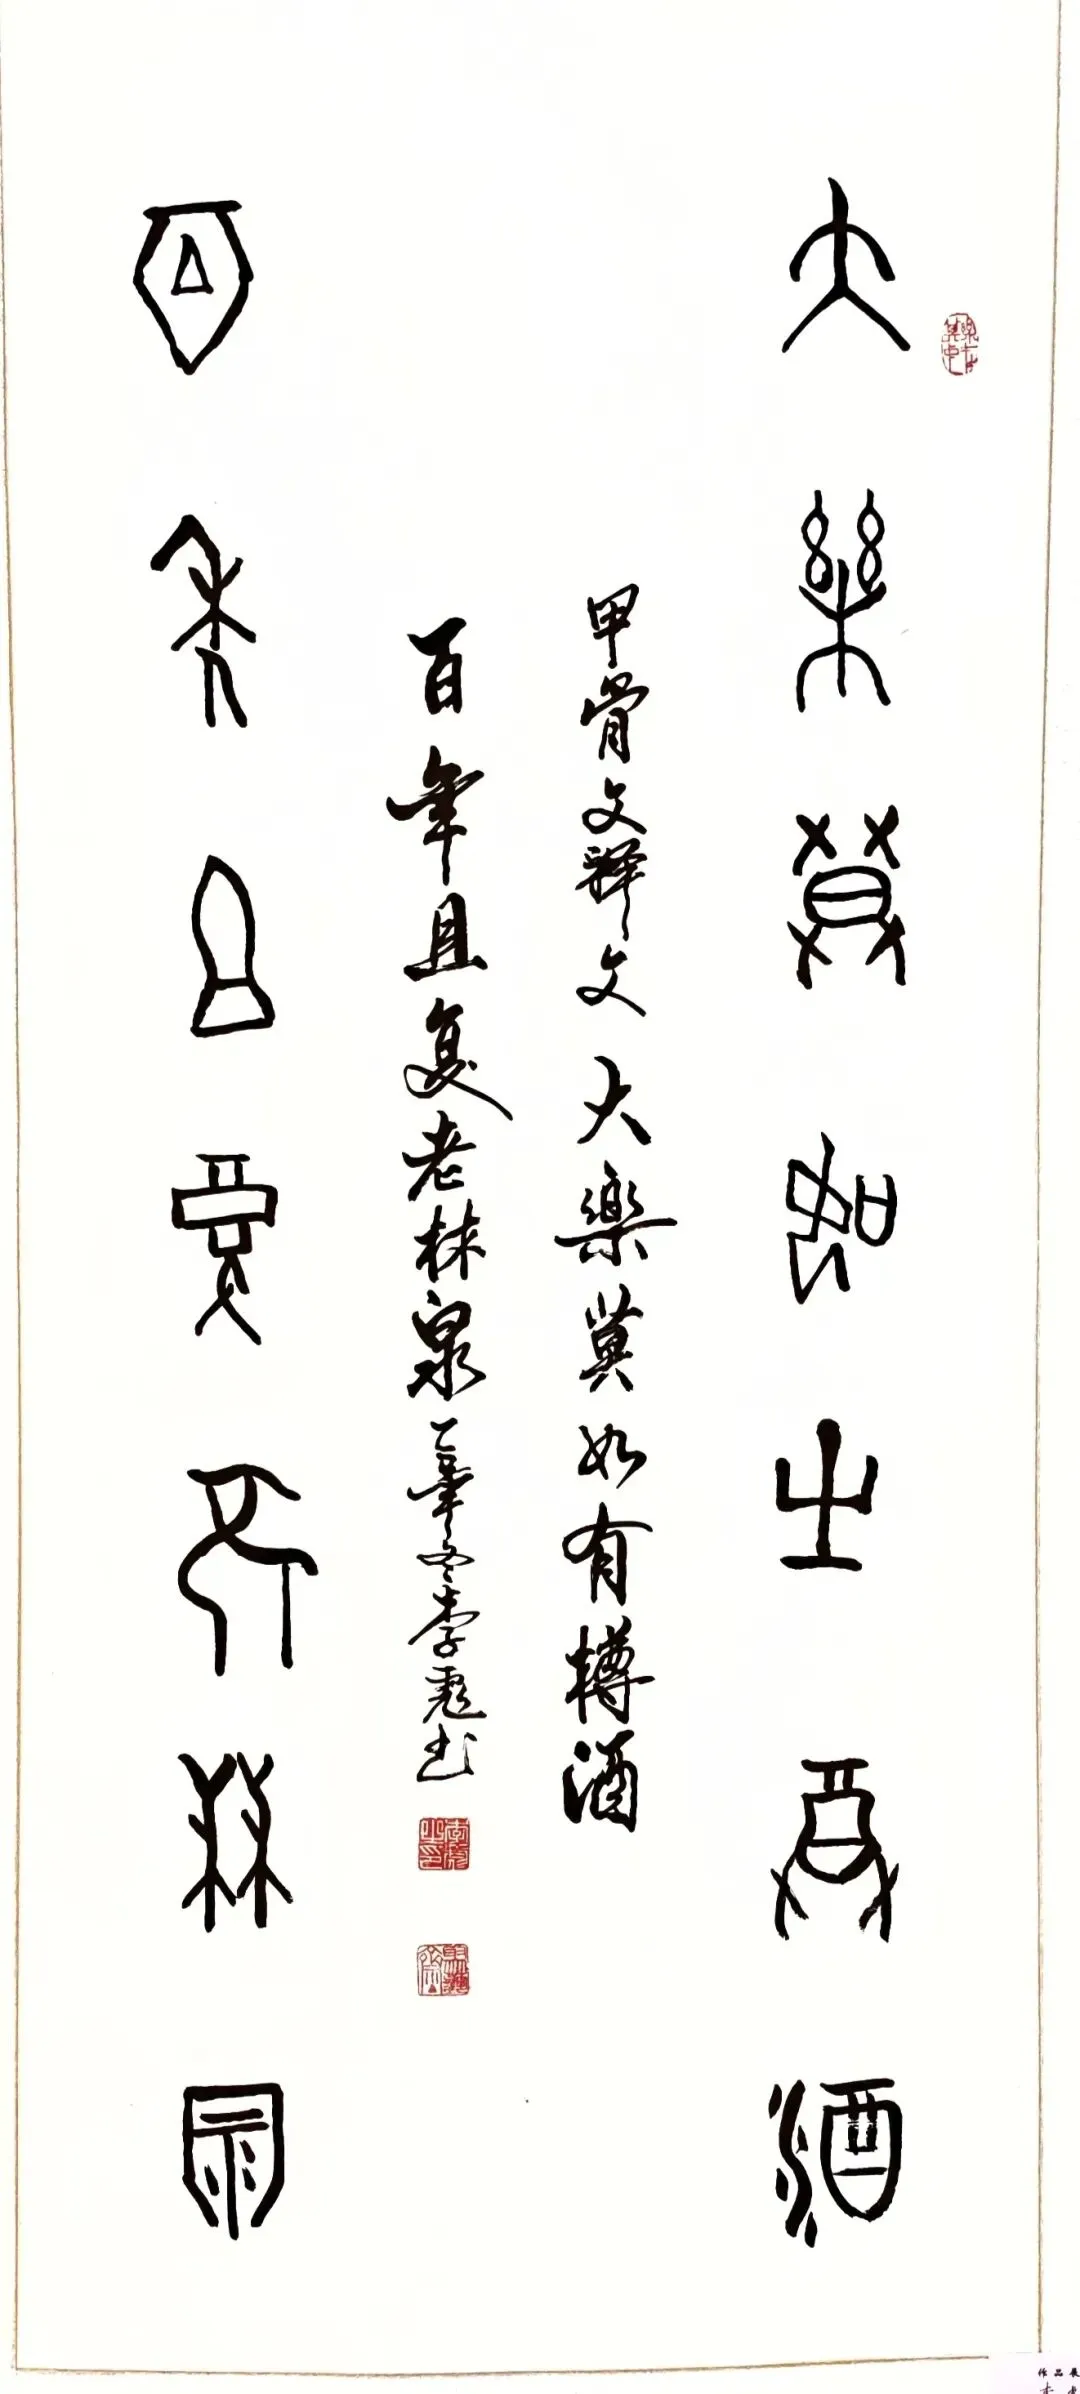 大樂莫如㞢尊酒
甲骨文释文 大樂莫如有樽酒
百年且复老林泉 冬李书
百年且复老林泉
作品展